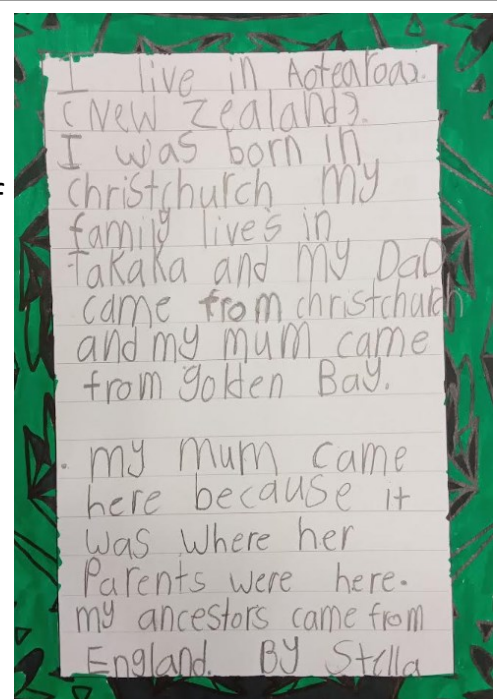 I live in Aotearoa).
(New Zealand).
I was born in
christchurch my
family lives in
Takaka and my DaD
came from christchurch
and my mum came
from golden Bay.
. my mum came
here because it
was where her
Parents were here.
my ancestors came from
England. By Stella